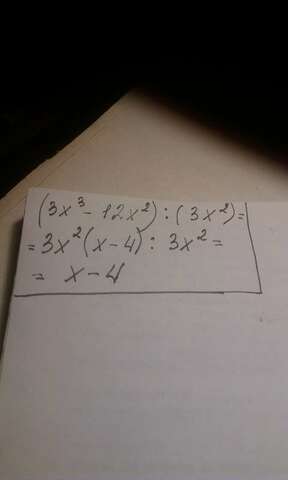 (3x³ - 12x²) : (3x²) =
= 3x²(x - 4) : 3x² =
= x - 4